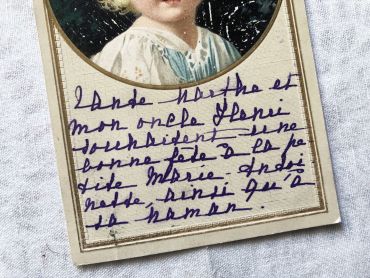 Tante Marthe et
mon oncle Henri
souhaitent une
bonne fête à la pe
tite Marie-Antoi
nette, ainsi qu'à
sa maman.